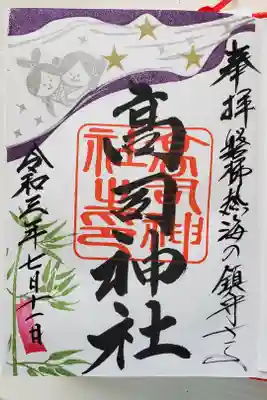 奉拝 磐梯熱海の鎮守さま
高司神社
高司神
社之印
令和三年七月十一日